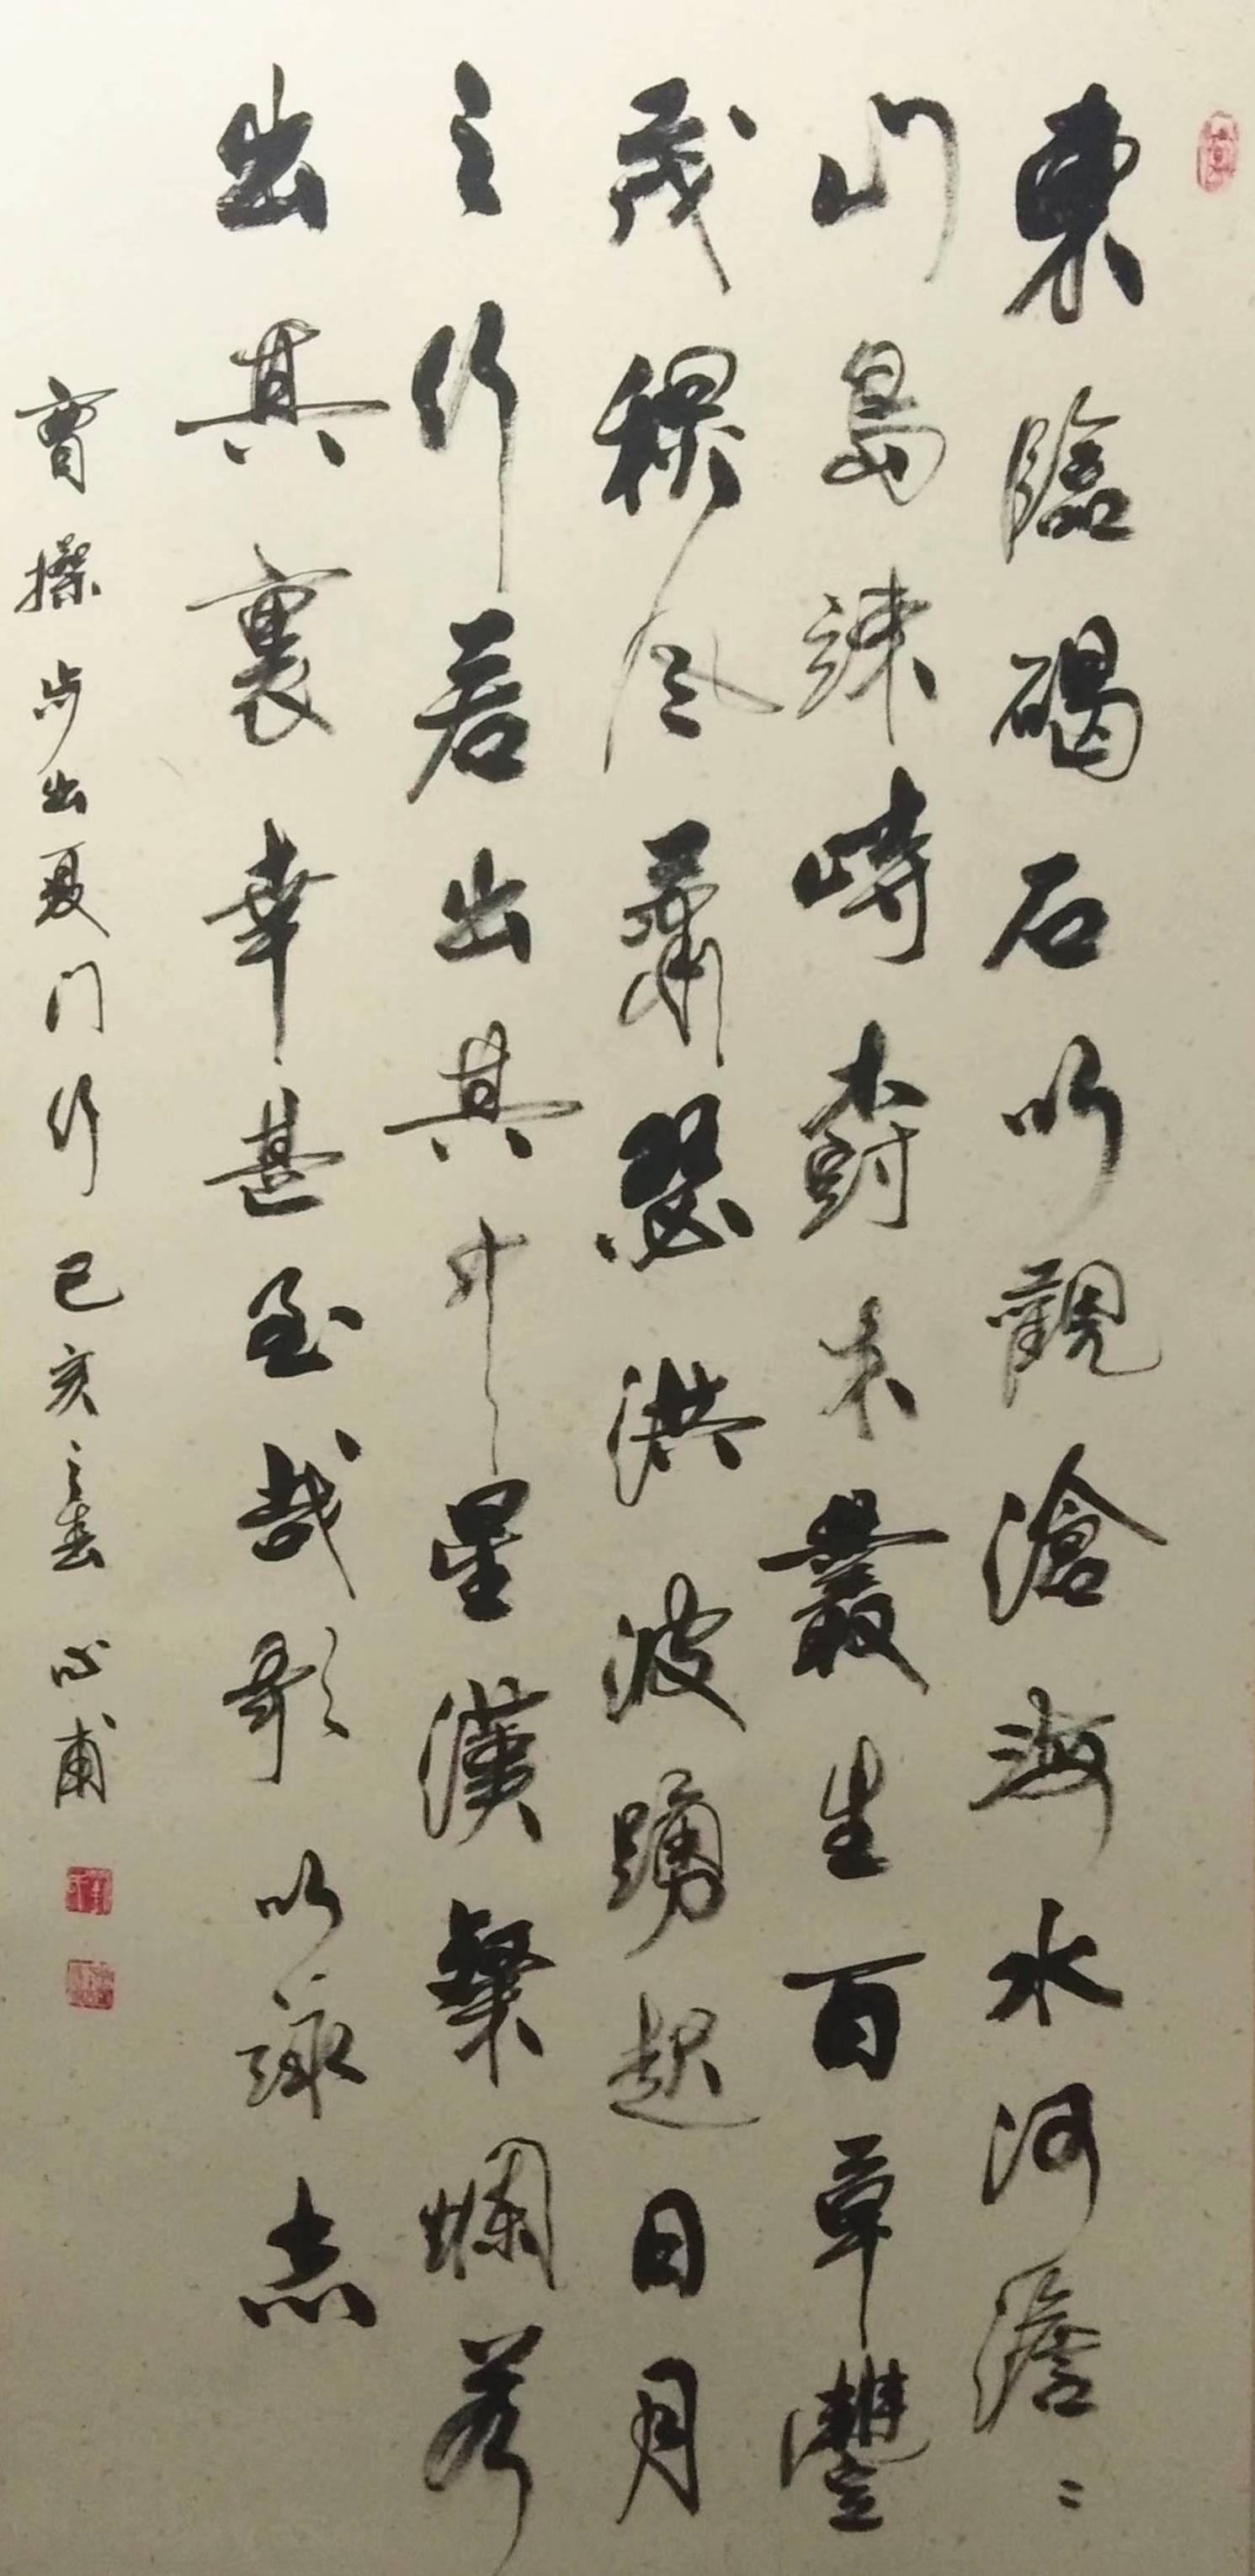 東臨碣石以觀滄海水河澹〻
山島竦峙樹木叢生百草豐
茂穐风蕭瑟洪波踴起日月
之行若出其中星漢粲爛若
出其裏幸甚至哉歌以詠志
曹操步出夏门行己亥之春心甫